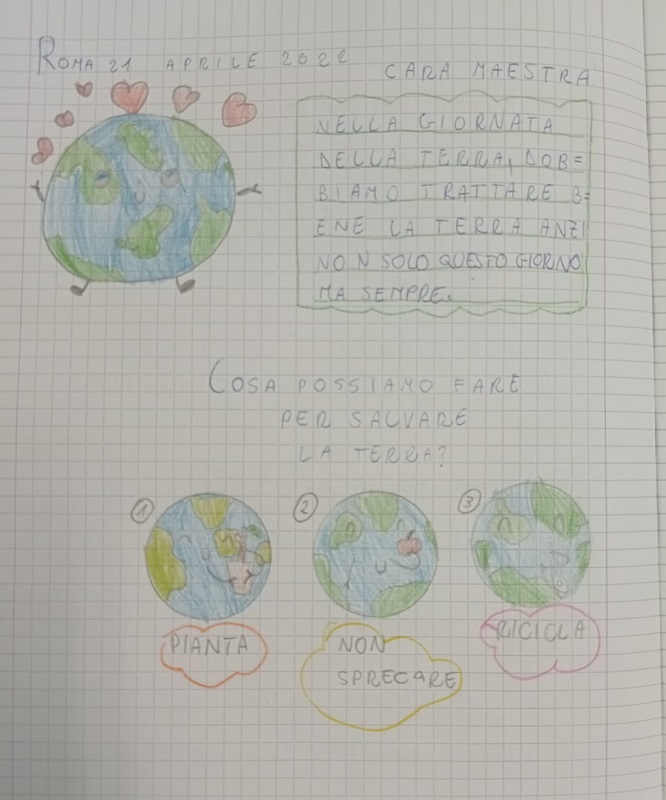 ROMA 21 APRILE 2022
CARA MAESTRA
NELLA GIORNATA
DELLA TERRA, DOB=
BIAMO TRATTARE B=
ENE LA TERRA ANZI
NON SOLO QUESTO GIORNO
MA SEMPRE.
COSA POSSIAMO FARE
PER SALVARE
LA TERRA?
1
2
3
PIANTA
NON
SPRECARE
RICICLA